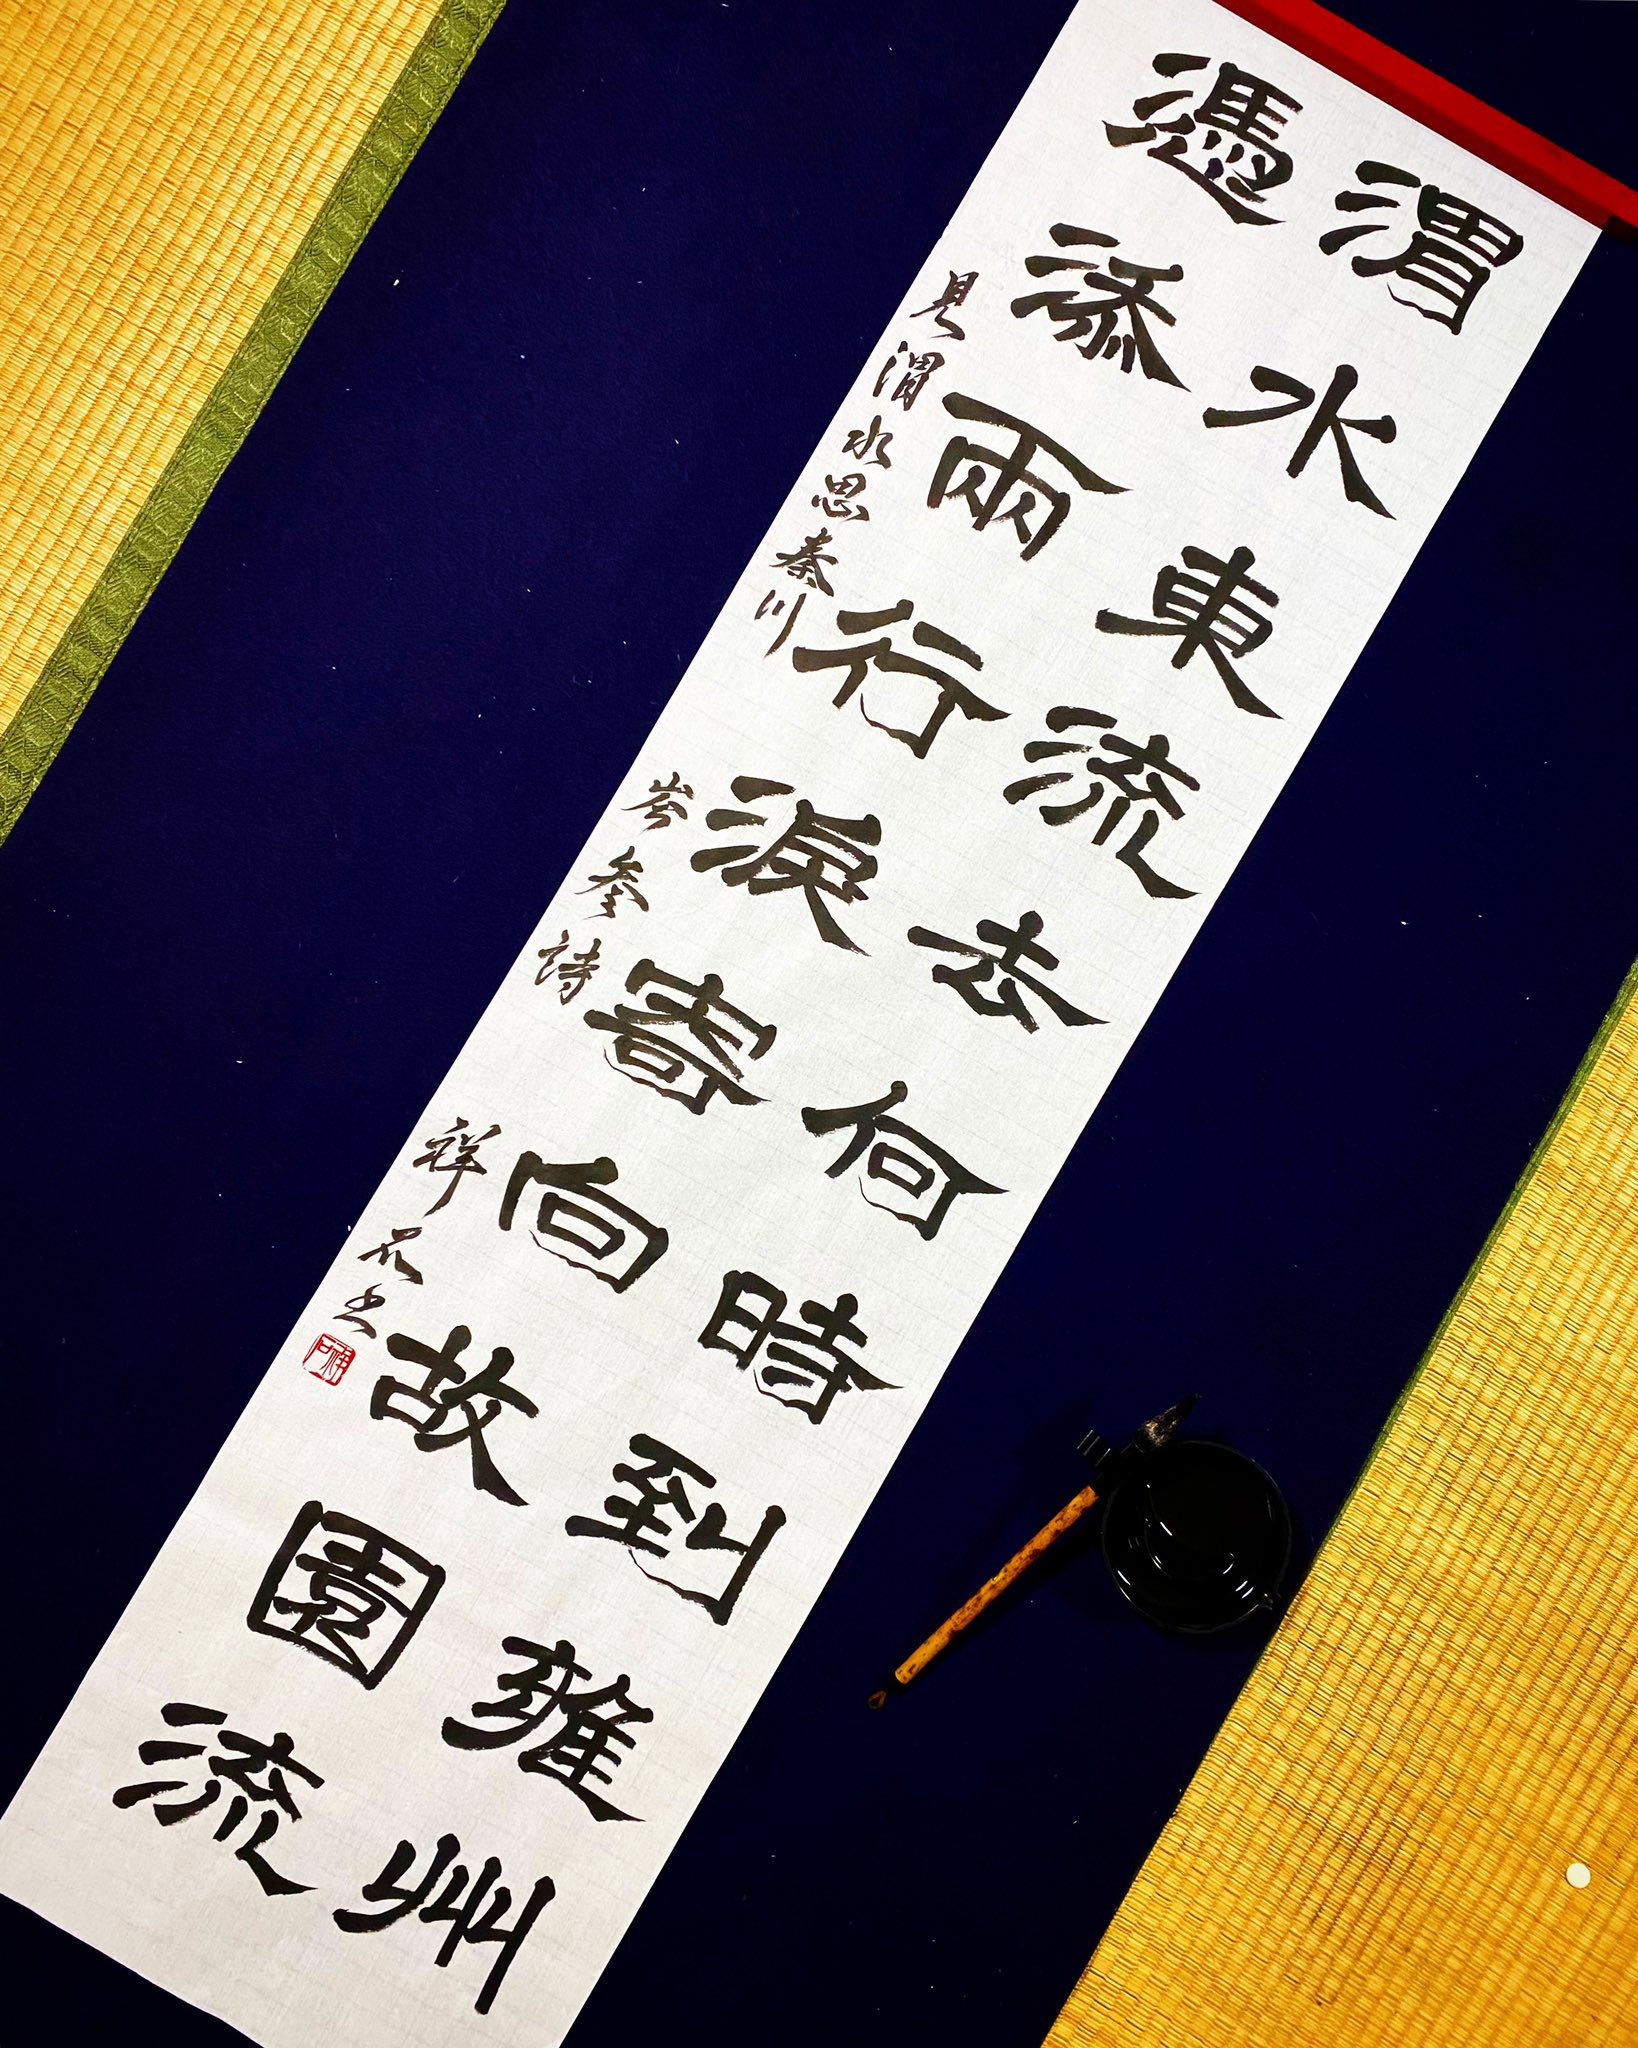 渭水東流去何時到雍州
憑添兩行淚寄向故園流
見渭水思秦川 岑參詩 祥石书